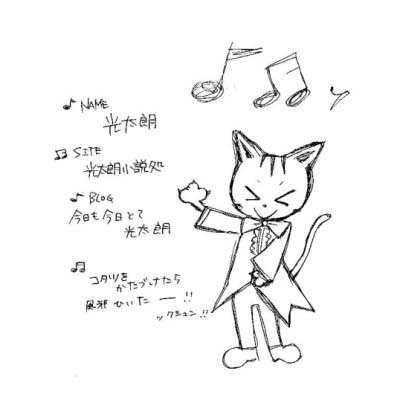 ♪ NAME
光太朗
♫ SITE
光太朗小説処
♪ BLOG
今日も今日とて
光太朗
♫
コタツを
かたづけたら
風邪ひいたー!!
ックシュン!!